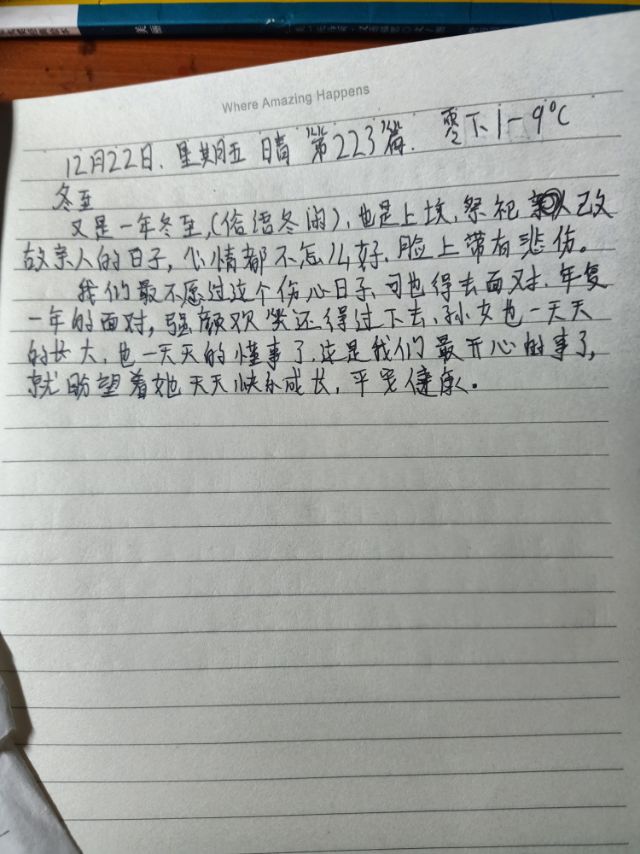 Where Amazing Happens
12月22日. 星期五 晴 第223篇. 零下1-9℃
冬至
又是一年冬至,(俗语冬闹), 也是上坟, 祭祀亲人已文
故亲人的日子, 心情都不怎么好. 脸上带有悲伤。
我们最不愿过这个伤心日子、可也得去面对. 年复
一年的面对, 强颜欢笑还得过下去、孙女也一天天
的长大, 也一天天的懂事了. 这是我们最开心的事了,
就盼望着她天天快乐成长, 平安健康。